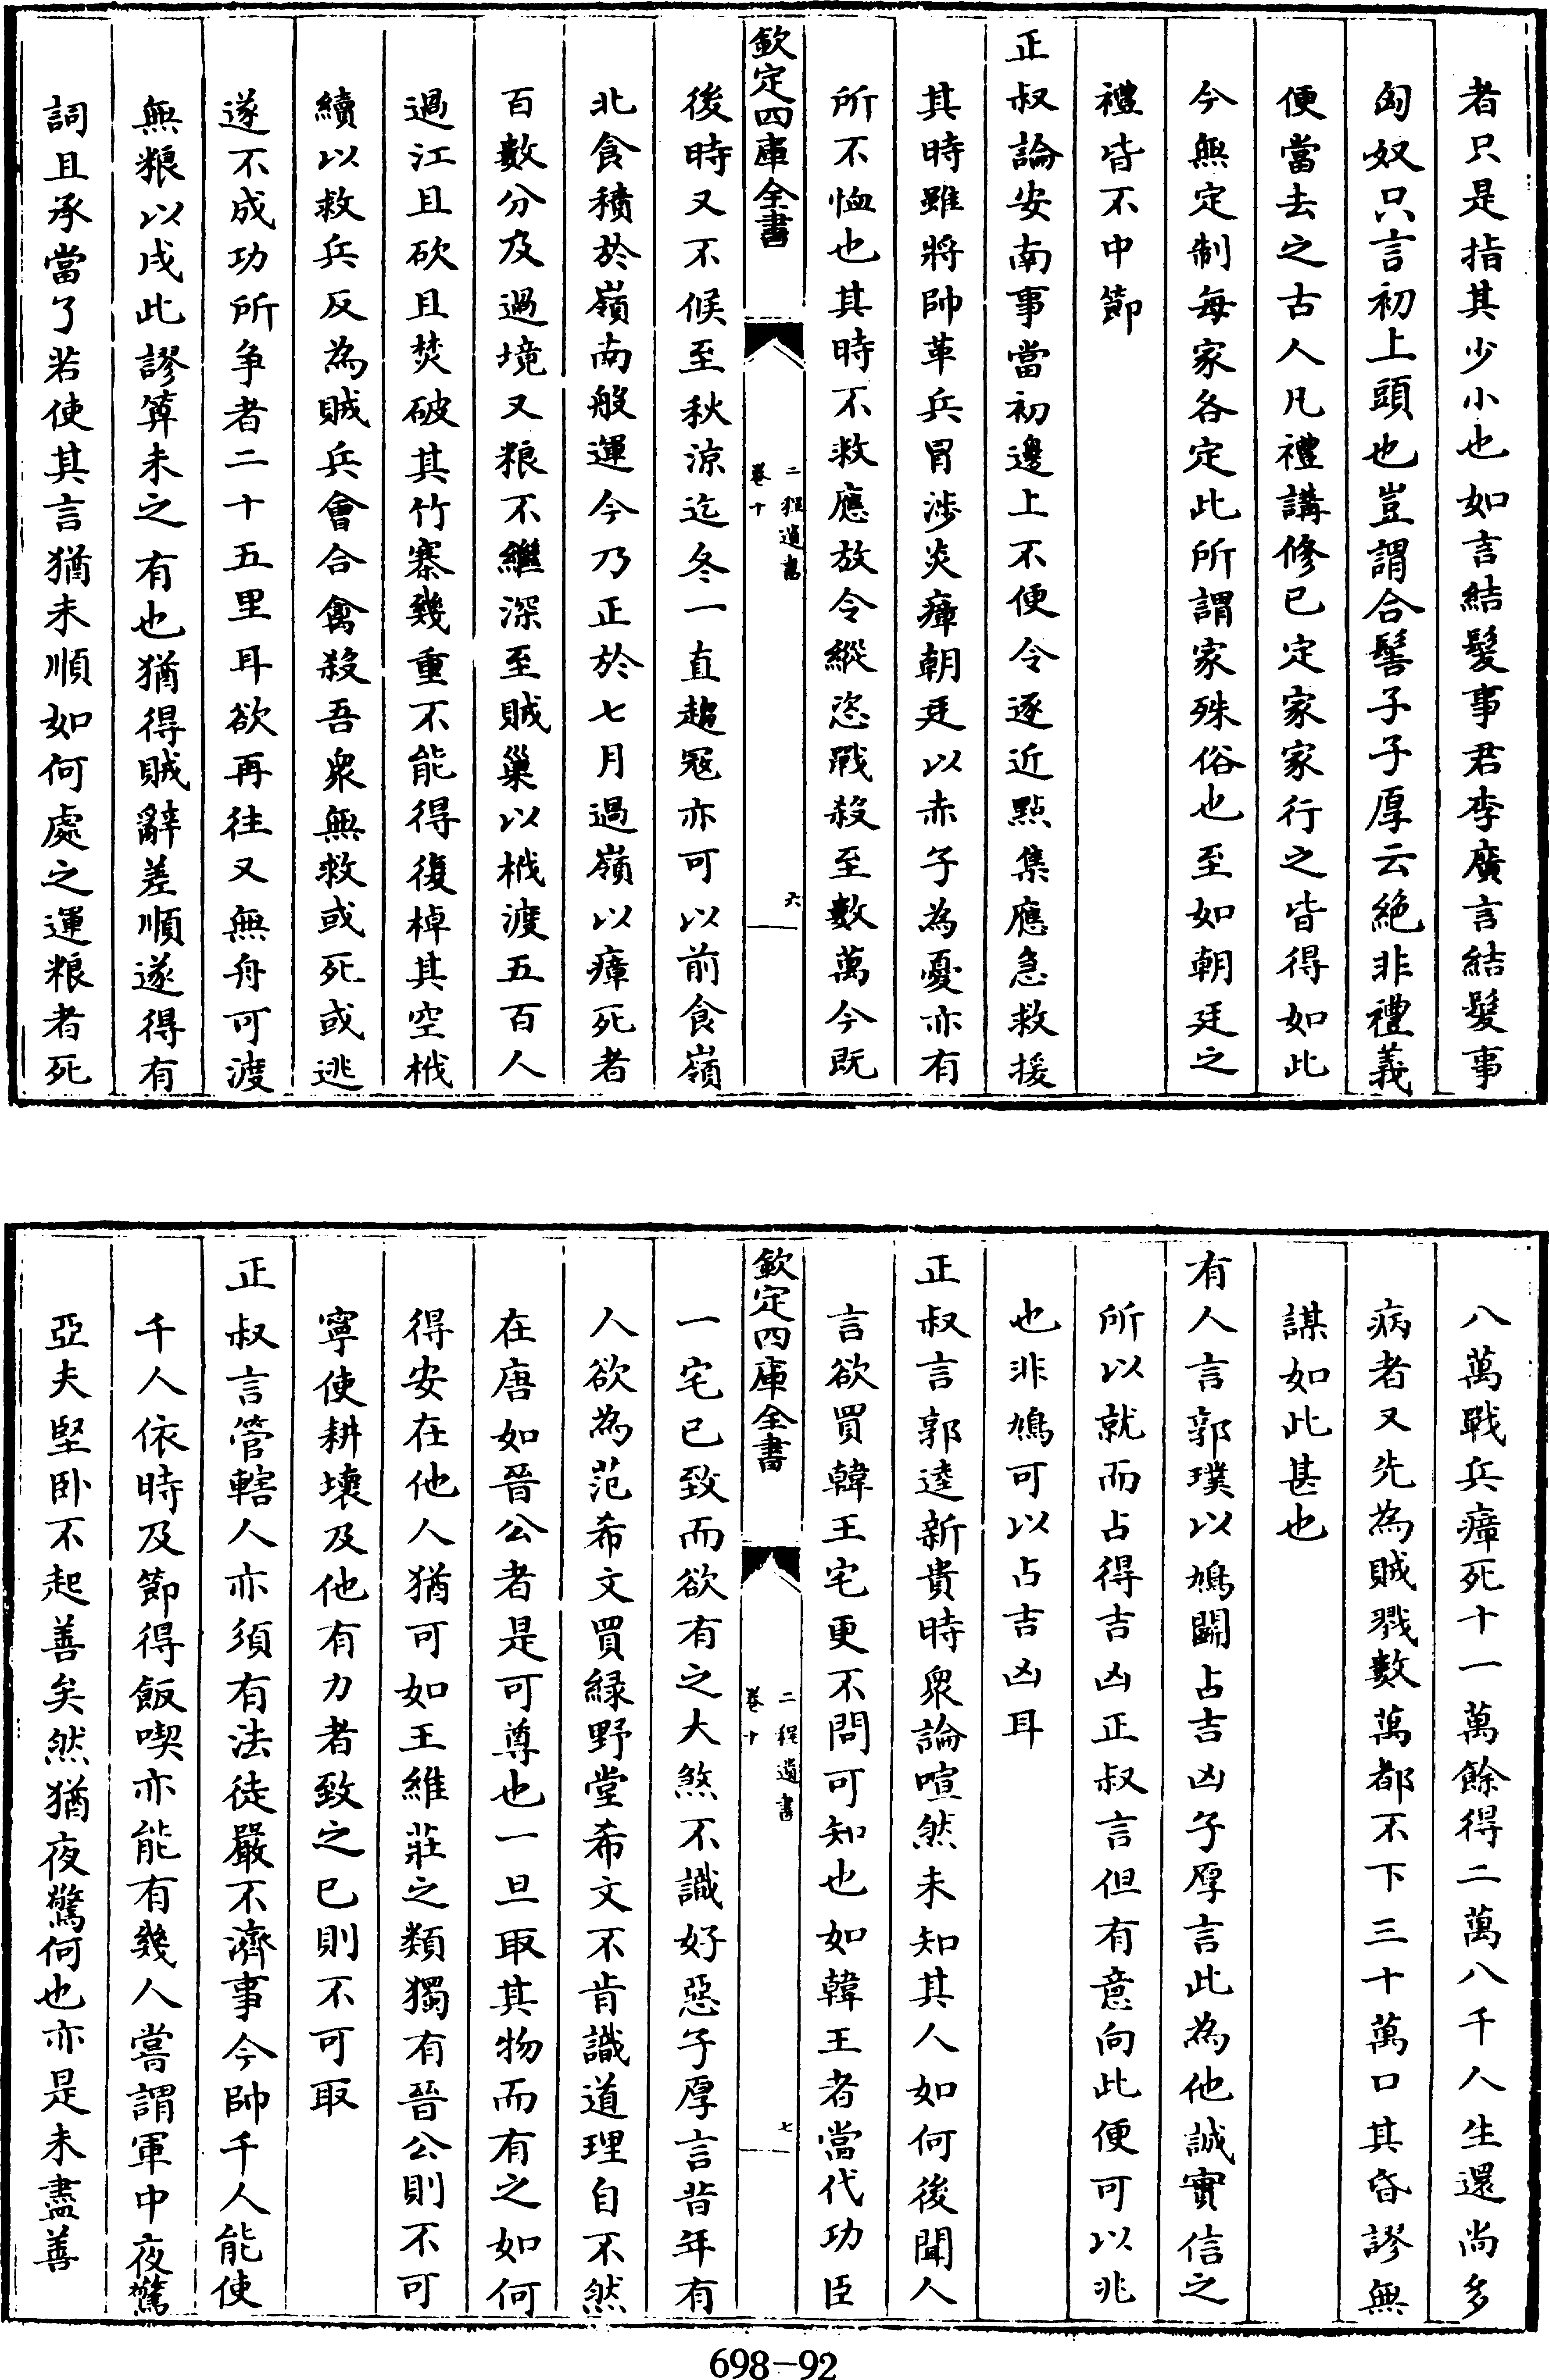 者只是指其少小也如言結髮事君李廣言結髮事
匈奴只言初上頭也豈謂合髻子子厚云絶非禮義
便當去之古人凡禮講修已定家家行之皆得如此
今無定制每家各定此所謂家殊俗也至如朝廷之
禮皆不中節
正叔論安南事當初邊上不便令逐近點集應急救援
其時雖將帥革兵冒涉炎瘴朝廷以赤子為憂亦有
所不恤也其時不救應放令縱恣戰殺至數萬今既
欽定四庫全書
二程遺書
卷十
六
後時又不候至秋涼迄冬一直趨冦亦可以前食嶺
北食積於嶺南般運今乃正於七月過嶺以瘴死者
百數分及過境又粮不繼深至賊巢以栰渡五百人
過江且砍且焚破其竹寨幾重不能得復棹其空栰
續以救兵反為賊兵會合禽殺吾衆無救或死或逃
遂不成功所争者二十五里耳欲再往又無舟可渡
無粮以戍此謬算未之有也猶得賊辭差順遂得有
詞且承當了若使其言猶未順如何處之運粮者死
八萬戰兵瘴死十一萬餘得二萬八千人生還尚多
病者又先為賊戮數萬都不下三十萬口其昏謬無
謀如此甚也
有人言郭璞以鳩鬭占吉凶子厚言此為他誠實信之
所以就而占得吉凶正叔言但有意向此便可以兆
也非鳩可以占吉凶耳
正叔言郭逵新貴時衆論喧然未知其人如何後聞人
言欲買韓王宅更不問可知也如韓王者當代功臣
欽定四庫全書
二程遺書
卷十
七
一宅已致而欲有之大煞不識好惡子厚言昔年有
人欲為范希文買緑野堂希文不肯識道理自不然
在唐如晉公者是可尊也一旦取其物而有之如何
得安在他人猶可如王維莊之類獨有晉公則不可
寧使耕壞及他有力者致之已則不可取
正叔言管轄人亦須有法徒嚴不濟事今帥千人能使
千人依時及節得飯喫亦能有幾人嘗謂軍中夜驚
亞夫堅卧不起善矣然猶夜驚何也亦是未盡善
698-92